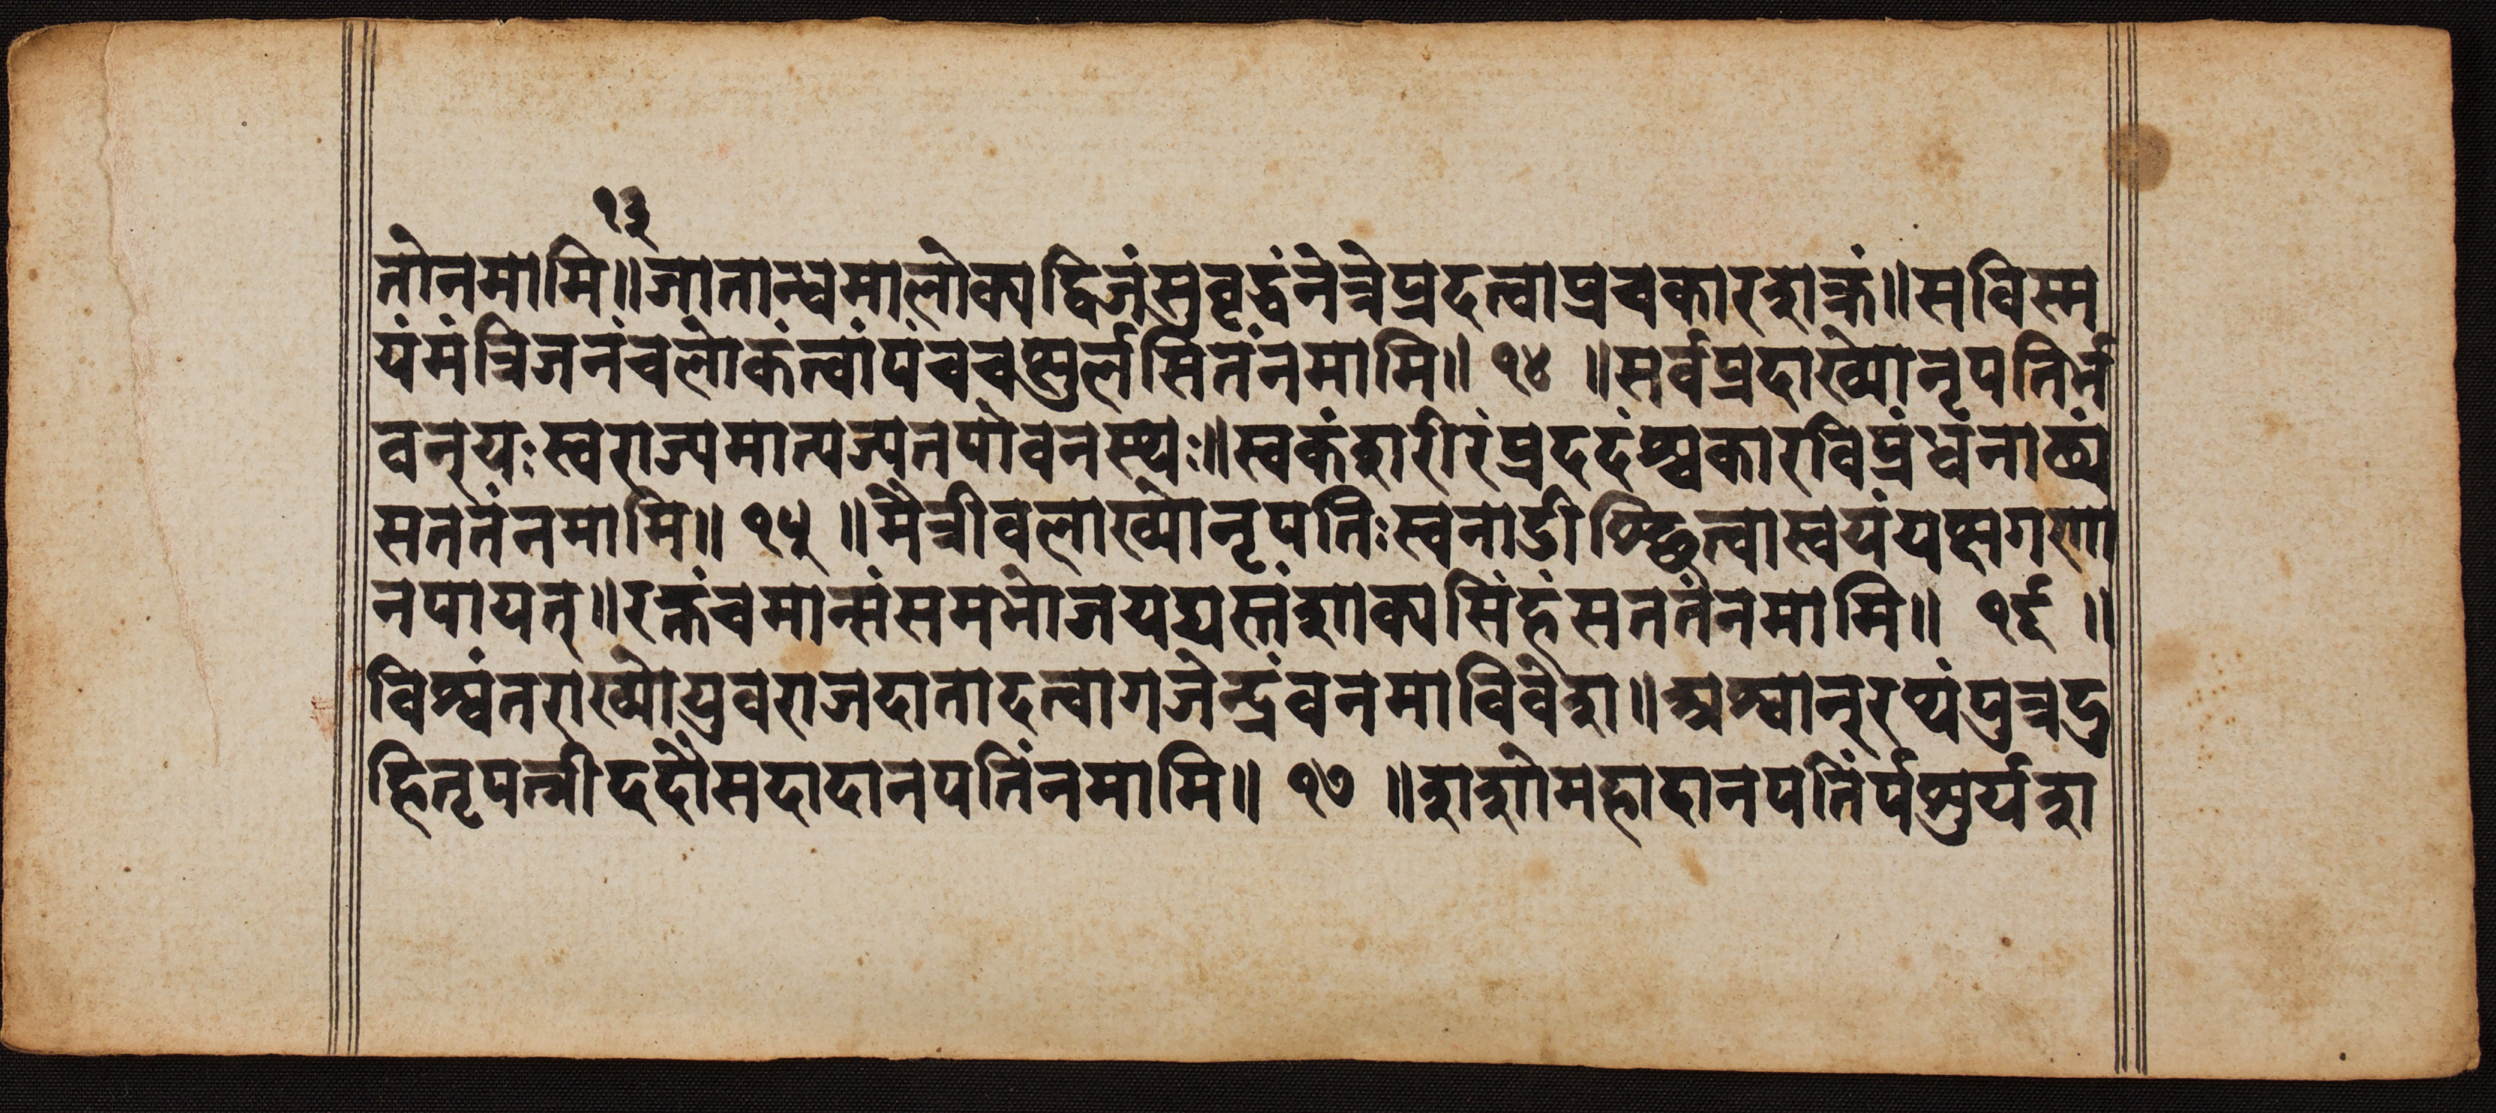 १३
तोनमामि॥जातान्धमालोक्यद्विजंसुवृद्धंनेत्रेप्रदत्वाप्रचकारशक्रं॥सविस्म
यंमंत्रिजनंचलोकंत्वांपंचचक्षुर्लसितंनमामि॥ १४ ॥सर्वप्रदाख्योनृपतिर्भ
वन्यःस्वराज्यमात्यज्यतपोवनस्थः॥स्वकंशरीरंप्रददंश्चकारविप्रंधनाढ्यं
सततंनमामि॥ १५ ॥मैत्रीवलाख्योनृपतिःस्वनाडीश्छित्वास्वयंयक्षगणा
नपायत्॥रक्तंचमान्संसमभोजयद्यस्तंशाक्यसिंहंसततंनमामि॥ १६ ॥
विश्वंतराख्योयुवराजदातादत्वागजेन्द्रंवनमाविवेश॥अश्वान्रथ्यंपुत्रदु
हितृपत्नीददौसदादानपतिंनमामि॥ १७ ॥शशोमहादानपतिंर्पक्षुर्यश